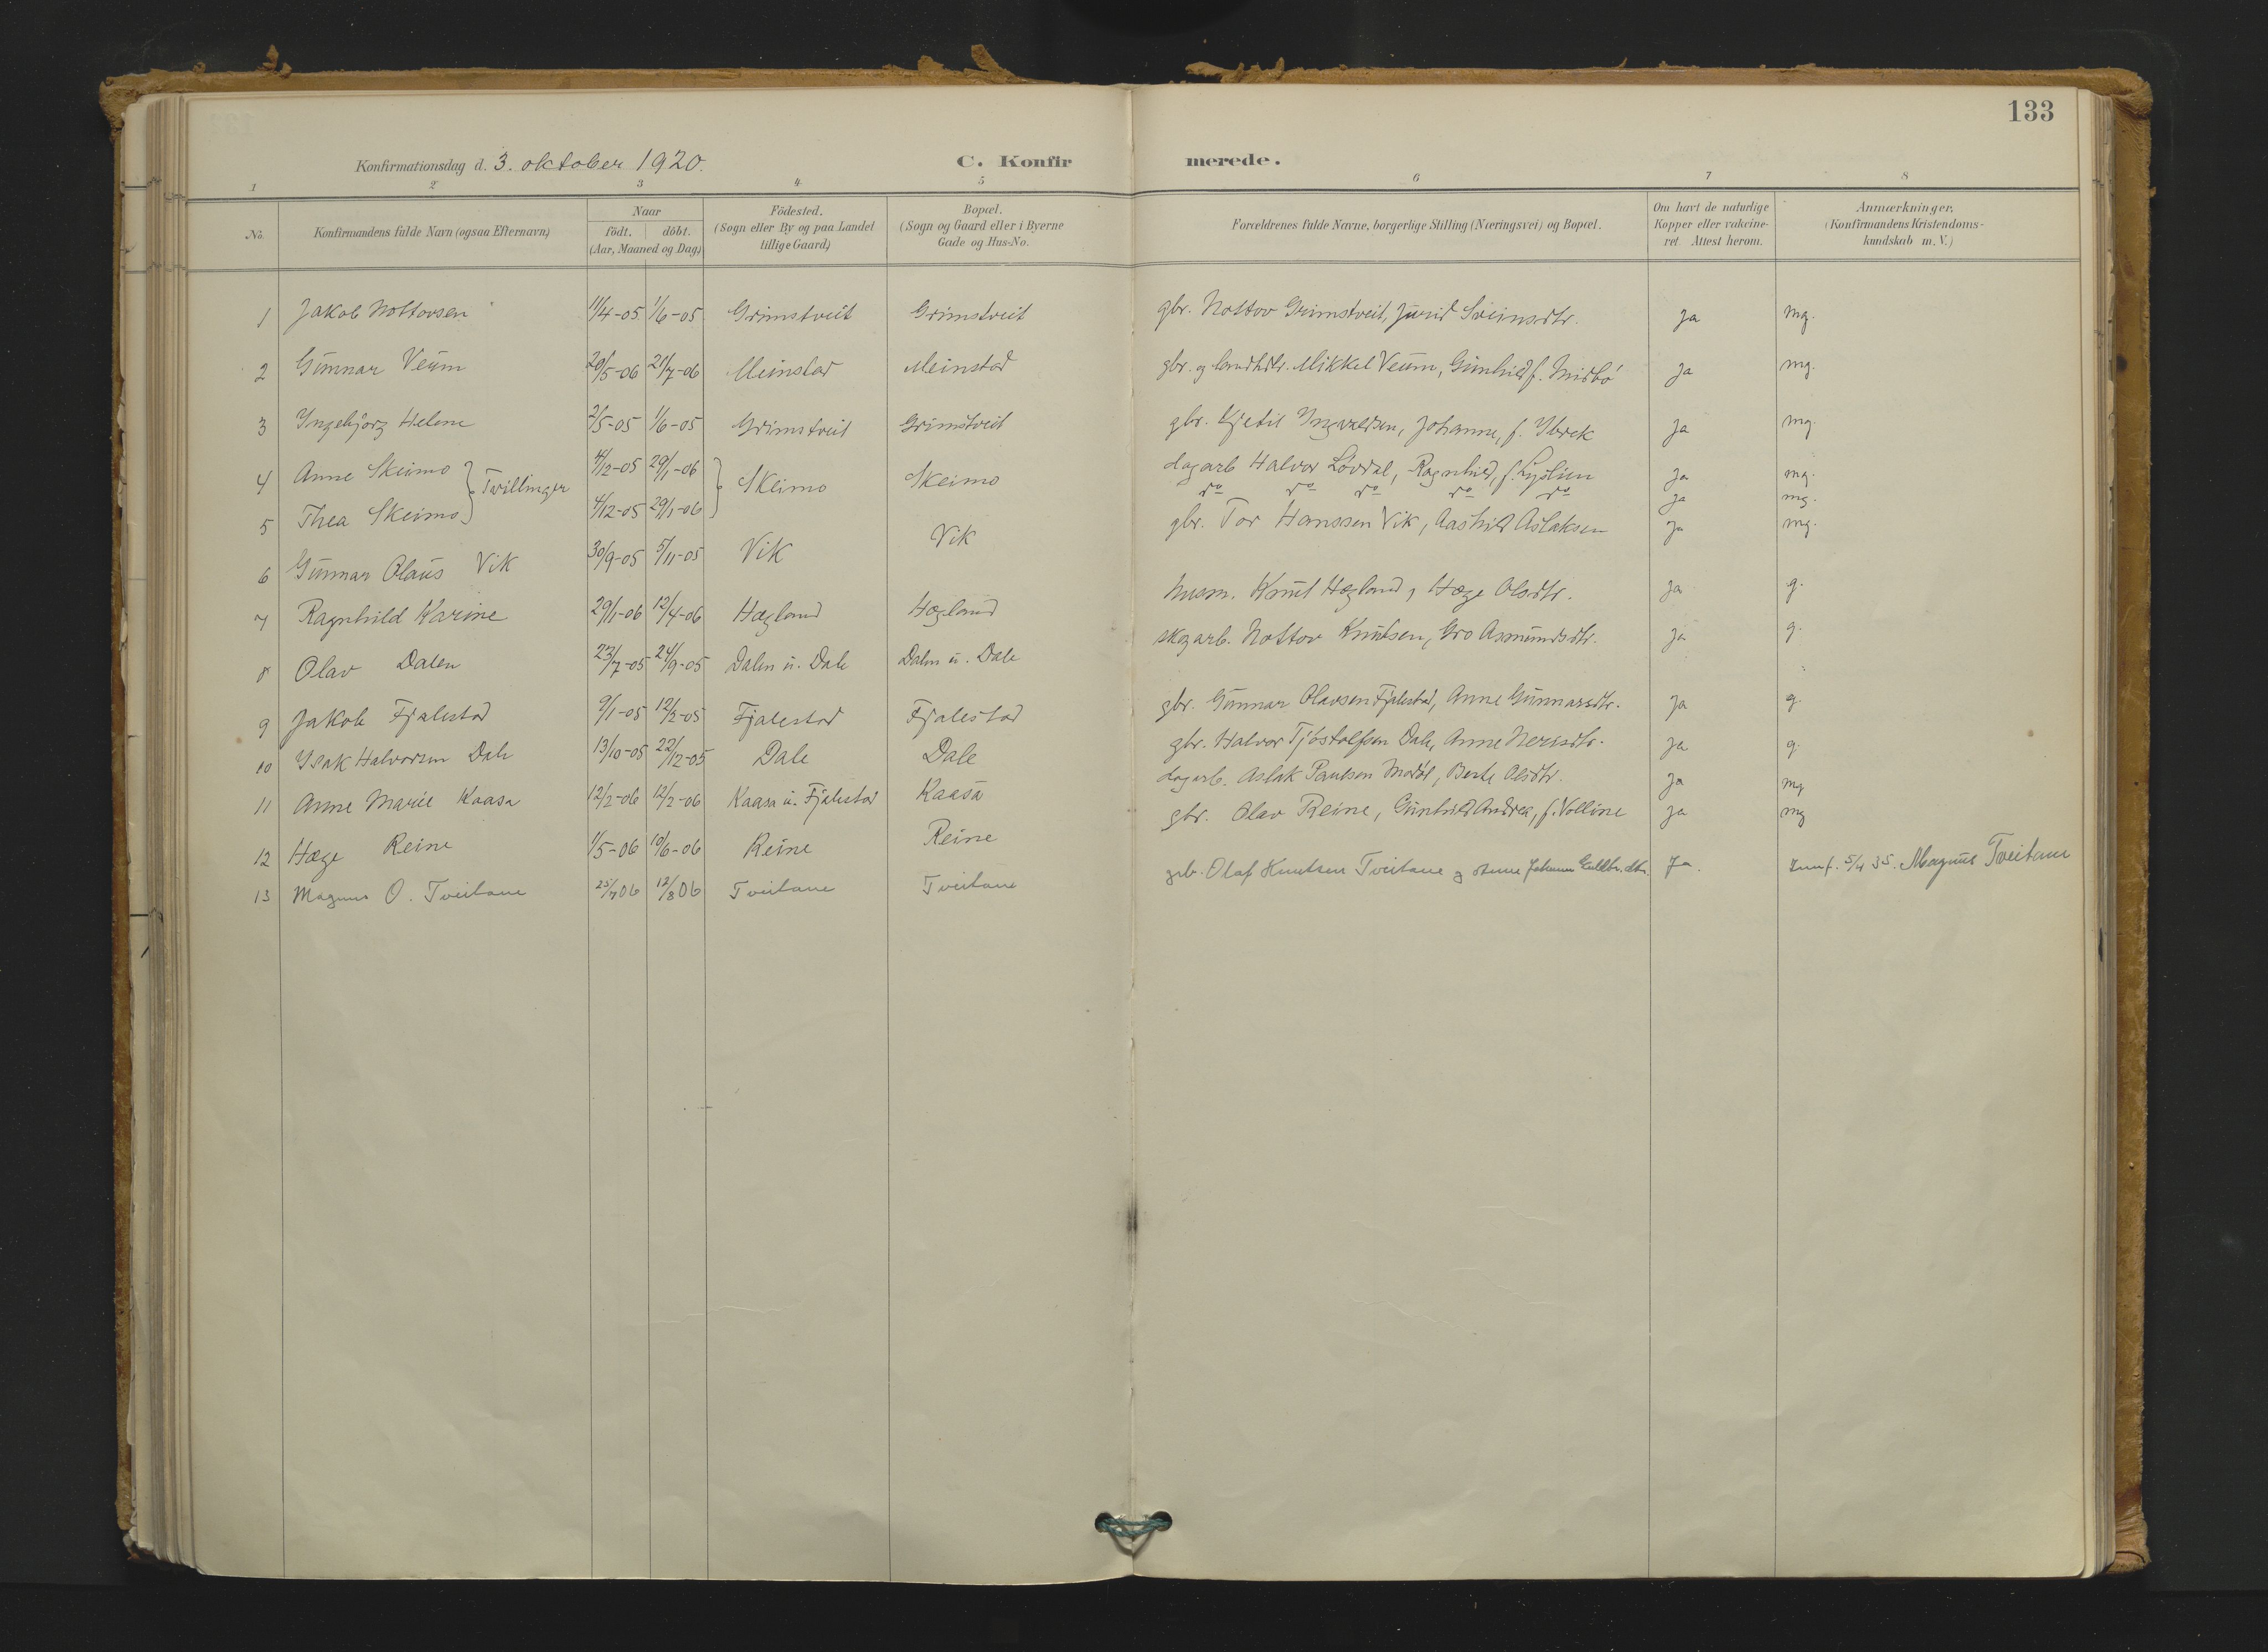 133
Konfirmationsdag d. 3. oktober 1920.
C. Konfirmerede.
1 2 3 4 5 6 7 8
No.
Konfirmandens fulde Navn (ogsaa Efternavn)
Naar
født. døbt.
(Aar, Maaned og Dag)
Födested.
(Sogn eller By og paa Landet
tillige Gaard)
Bopæl.
(Sogn og Gaard eller i Byerne
Gade og Hus-No.
Forældrenes fulde Navne, borgerlige Stilling (Næringsvei) og Bopæl.
Om havt de naturlige
Kopper eller vakcine-
ret. Attest herom.
Anmærkninger,
(Konfirmandens Kristendoms-
kundskab m. V.)
1 Jakob Nottovsen 11/4-05 1/6-05 Grimstveit Grimstveit gbr. Nottov Grimstveit, Jurid Sveinsdtr. Ja mg.
2 Gunnar Veum 20/5-06 21/7-06 Meinstad Meinstad gbr. og landhdlr. Mikkel Veum, Gunhild f. Ja mg.
3 Ingebjørg Helene 2/5-05 1/6-05 Grimstveit Grimstveit gbr. Kjetil Ingvaldsen, Johanne, f. Ja mg.
4 Anne Skeimo } Tvillinger 4/12-05 29/1-06 } Skeimo Skeimo dagarb. Halvor Løvdal, Ragnhild, f. Lyslien Ja mg.
5 Thea Skeimo 4/12-05 29/1-06 do do do do do Ja mg.
6 Gunnar Olaus Vik 30/9-05 5/11-05 Vik Vik gbr. Tor Hanssen Vik, Aashild Aslaksen Ja mg.
7 Ragnhild Karine 29/1-06 12/4-06 Hægland Hægland husm. Knut Hægland, Hæge Olsdtr. Ja g.
8 Olav Dalen 23/7-05 24/9-05 Dalen u. Dale Dalen u. Dale skogarb. Nottov Knutsen, Gro Asmundsdtr. Ja g.
9 Jakob Fjalestad 9/1-05 12/2-05 Fjalestad Fjalestad gbr. Gunnar Olavsen Fjalestad, Anne Gunnarsdtr. Ja g.
10 Isak Halvorsen Dale 13/10-05 22/12-05 Dale Dale gbr. Halvor Tjøstolfsen Dale, Anne Nerisdtr. Ja g.
11 Anne Marie Kaasa 12/2-06 12/2-06 Kaasa u. Fjalestad Kaasa dagarb. Aslak Paulsen, Berte Olsdtr. Ja mg
12 Hæge Reine 1/5-06 10/6-06 Reine Reine gbr. Olav Reine, Gunhild Andrea, f. Volline Ja mg
13 Magnus O. Tveitane 25/7 06 12/8 06 Tveitane Tveitane grb. Olaf Knutsen Tveitane og Anne Johanne Gulbr.dtr. Ja. Innf. 5/4 35. Magnus Tveitane